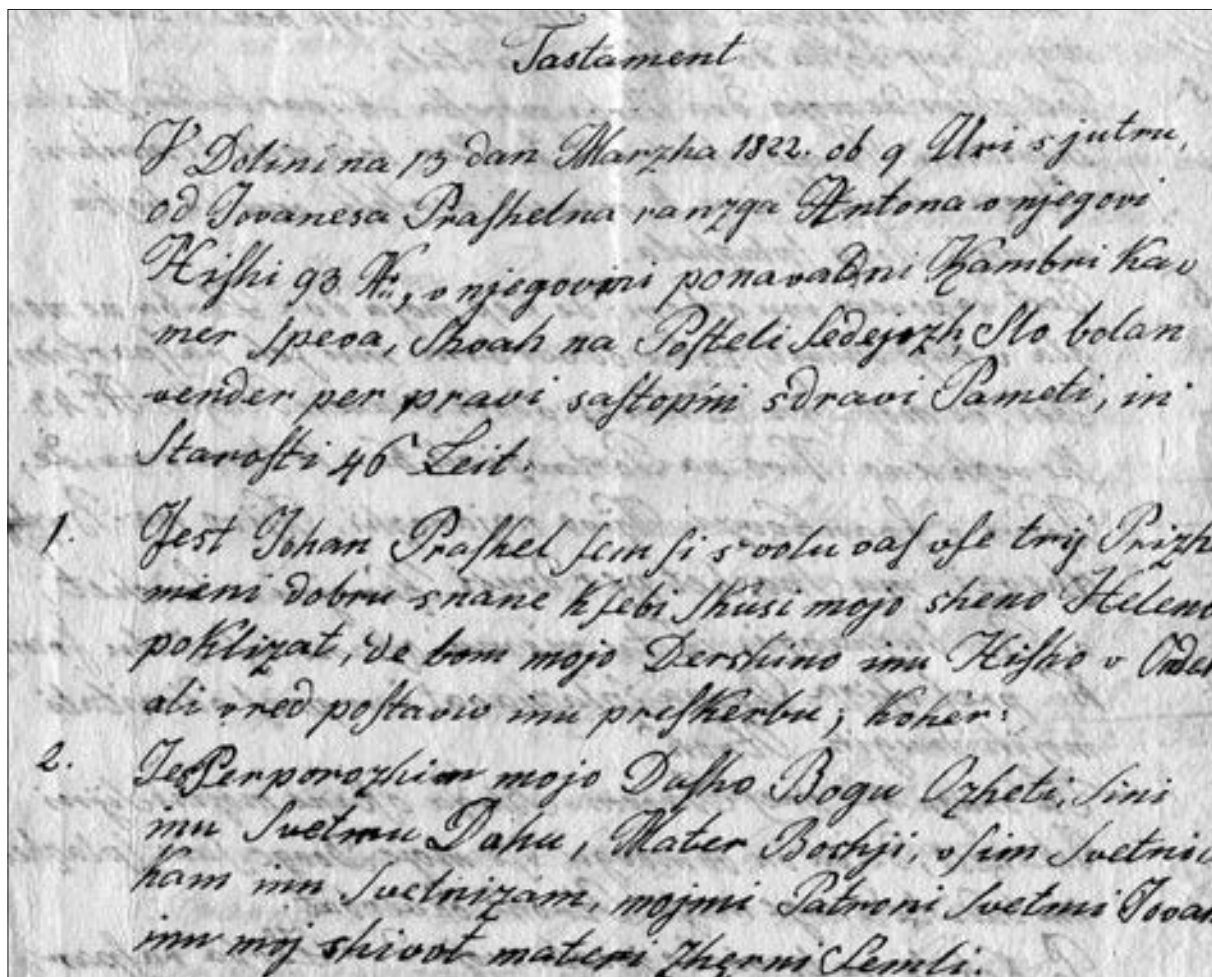 Tastament
V Dolini na 13 dan Marzha 1822. ob 9 Uri sjutru,
od Jovanesa Praſhelna ranzga Antona v njegovi
Hiſhi 93 N:, v njegovini ponavadni Kambri Kav
mer ſpeva, Shoah na Poſteli ſedejozh, Slo bolan
vender per pravi saſtopni sdravi Pameti, in
ſtaroſti 46 Leit.
1. Jest Johan Praſhel ſem ſi s volu vaſ vſe trij Prizh
meni dobru snane kſebi ſkusi mojo sheno Heleno
poklizat, de bom mojo Dershino inu Hiſho v Order
ali vred poſtaviv inu preſkerbu; koker:
2. Jeſt Perporozhim mojo Duſho Bogu Ozheti, ſini
inu ſvetmu Duhu, Mater Boshji, vſim ſvetni
kam inu ſvetnizam, mojmi Patroni ſvetmi Jovan
inu moj shivot materi zherni ſemli.